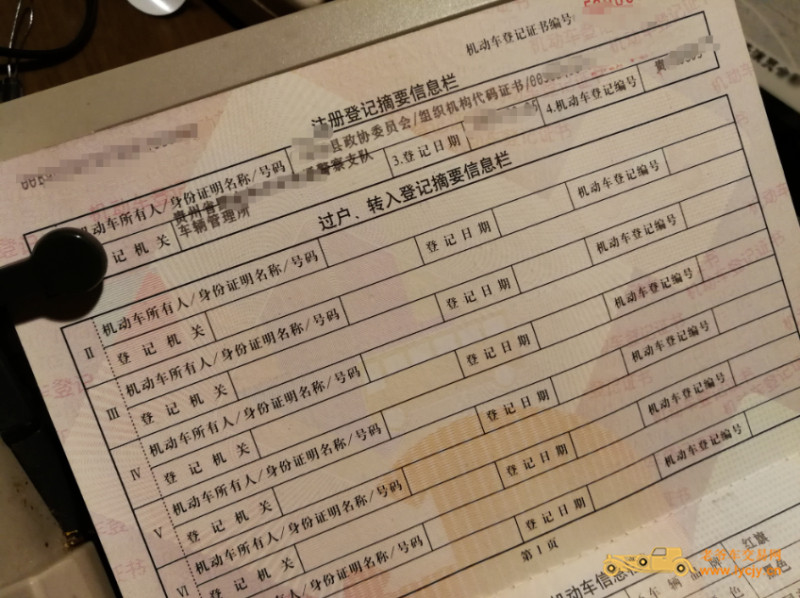 机动车登记证书编号
注册登记摘要信息栏
机动车所有人/身份证明名称/号码 县政协委员会/组织机构代码证书/00
记机关 贵州省 警察支队
车辆管理所
3.登记日期
4.机动车登记编号 贵
过户、转入登记摘要信息栏
II 机动车所有人/身份证明名称/号码
登记机关 登记日期 机动车登记编号
III 机动车所有人/身份证明名称/号码
登记机关 登记日期 机动车登记编号
IV 机动车所有人/身份证明名称/号码
登记机关 登记日期 机动车登记编号
V 机动车所有人/身份证明名称/号码
登记机关 登记日期 机动车登记编号
VI 机动车所有人/身份证明名称/号码
登记机关 登记日期 机动车登记编号
第1页
机动车信息栏
车辆
红旗
色
老爷车交易网
www.lycjy.cn